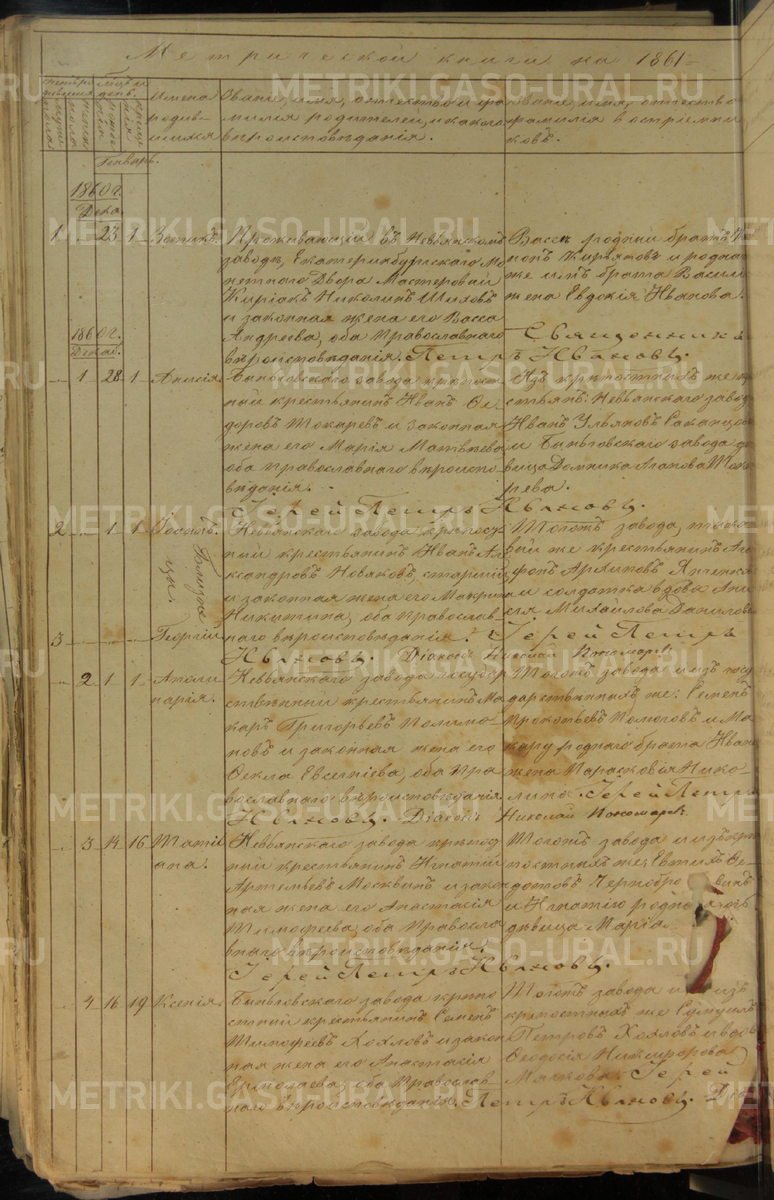 Метрической книги на 1861
Имена родившихся
Званіе, имя, отчество и фамилія родителей, и какого вѣроисповѣданія.
Званіе, имя, отчество фамилія воспріемниковъ.
Генварь.
1860 г.
Дека.
1 - 23 1 Зотикъ.
Проживающій въ Невьянскомъ
заводѣ, Екатеринбургскаго Мо
нетнаго Двора Мастеровой
Киріакъ Николинъ Шиловъ
и законная жена его Васса
Андреева, оба Православнаго
вѣроисповѣданія.
родный братъ
и родна
же имъ брата Васили
жена Евдокія Иванова.
Священникъ
Петръ Ивановъ.
1860 г.
Декаб.
- 1 28 1 Анисія.
Быньговскаго завода крѣпост
ный крестьянинъ Иванъ Ѳе
доровъ Токаревъ и законная
жена его Марія Матвѣева
оба православнаго вѣроиспо
вѣданія.
Изъ крѣпостныхъ же кре
стьянъ: Невьянскаго завод
Иванъ Ульяновъ
и Быньговскаго завода дѣ
вица Домника Агапова Тока
рева.
Іерей Петръ Ивановъ.
2 - 1 1 Іоаннъ.
Близнецы.
3 - - - Георгій
Невьянскаго завода крѣпост
ный крестьянинъ Иванъ Але
ксандровъ Новаковъ, старшій,
и законная жена его Макрина
Никитина, оба Православ
наго вѣроисповѣданія.
Тогоже завода,
вый же крестьянинъ Ага
фонъ Архиповъ
и солдатка вдова Ани
сія Михаилова Данилова
Іерей Петръ
Ивановъ. Діаконъ Николай Пономаревъ
- 2 1 1 Аполи
нарія.
Невьянскаго завода государ
ственный крестьянинъ Ма
каръ Григорьевъ
новъ и законная жена его
Ѳекла Евсегніева, оба Пра
вославнаго вѣроисповѣданія
Тогожъ завода изъ госу
дарственныхъ же: Семенъ
Прокопьевъ и Ма
кару роднаго брата Ивана
жена Парасковія Нико
лина. Іерей Петръ
Ивановъ. Діаконъ Николай Пономаревъ
- 3 14 16 Татiі
ана.
Невьянскаго завода крѣпост
ный крестьянинъ Игнатій
Артемьевъ Москвинъ и закон
ная жена его Анастасія
Тимофеева, оба Правосла
внаго вѣроисповѣданія.
Тогожъ завода изъ крѣ
постныхъ же Евтихъ Ѳе
дотовъ
и Игнатію родна
дѣвица Марія.
Іерей Петръ Ивановъ.
- 4 16 19 Ксенія.
Быньговскаго завода крѣпо
стный крестьянинъ Семенъ
Тимофеевъ Хохловъ и закон
ная жена его Анастасія
Ермолаева, оба Православ
наго вѣроисповѣданія.
Тогожъ завода и изъ
крѣпостныхъ же
Петровъ Хохловъ и вдов
Ѳеодосія Никифорова
Іерей
Петръ Ивановъ.
METRIKI.GASO-URAL.RU